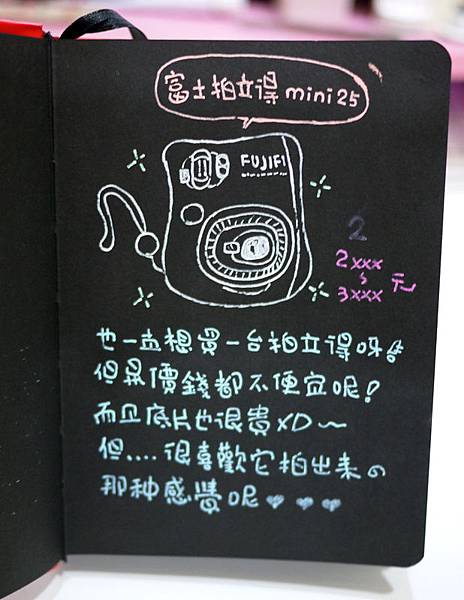 富士拍立得mini25
FUJIFI
2
2xxx
~
3xxx元
也一直想買一台拍立得呀
但是價錢都不便宜呢!
而且底片也很貴XD~
但....很喜歡它拍出來の
那种感覺呢♥♥♥